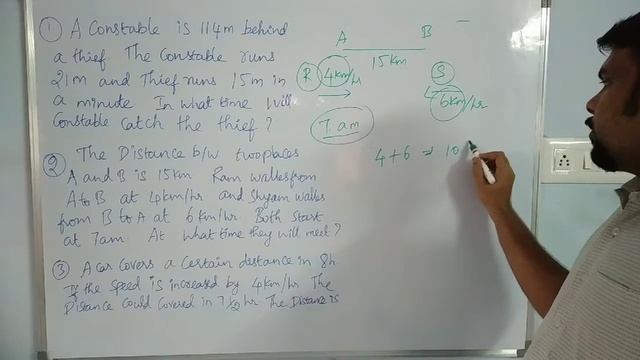 ① A Constable is 114m behind
a thief The Constable runs
21m and Thief runs 15m in
a minute In what time will
Constable catch the thief?
② The Distance b/w two places
A and B is 15km Ram walks from
A to B at 4km/hr and Shyam walks
from B to A at 6km/hr Both start
at 7am. At what time they will meet?
③ A car covers a certain distance in 8h
If the speed is increased by 4km/hr The
Distance could covered in 7½ hr The Distance is
A B
15km
R 4km/hr S
6km/hr
7am
4+6 ⇒ 10